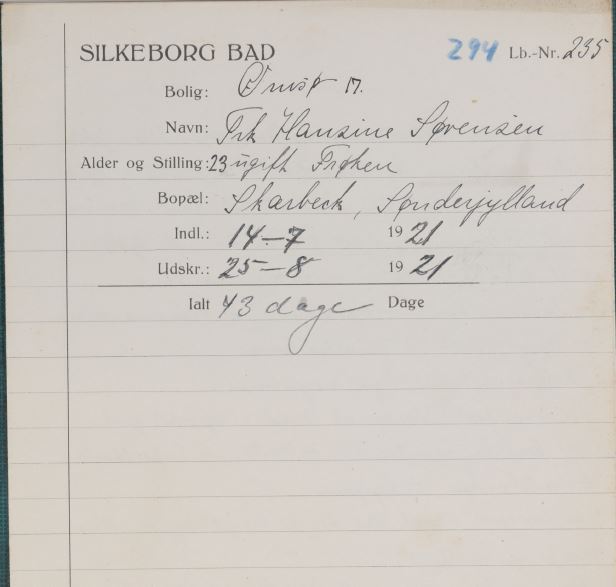 SILKEBORG BAD 294 Lb.-Nr. 235
Bolig: Ørnsø 17.
Navn: Frk Hansine Sørensen
Alder og Stilling: 23 ugift Frøken
Bopæl: Skærbeck, Sønderjylland
Indl.: 14-7 1921
Udskr.: 25-8 1921
Ialt 43 dage Dage